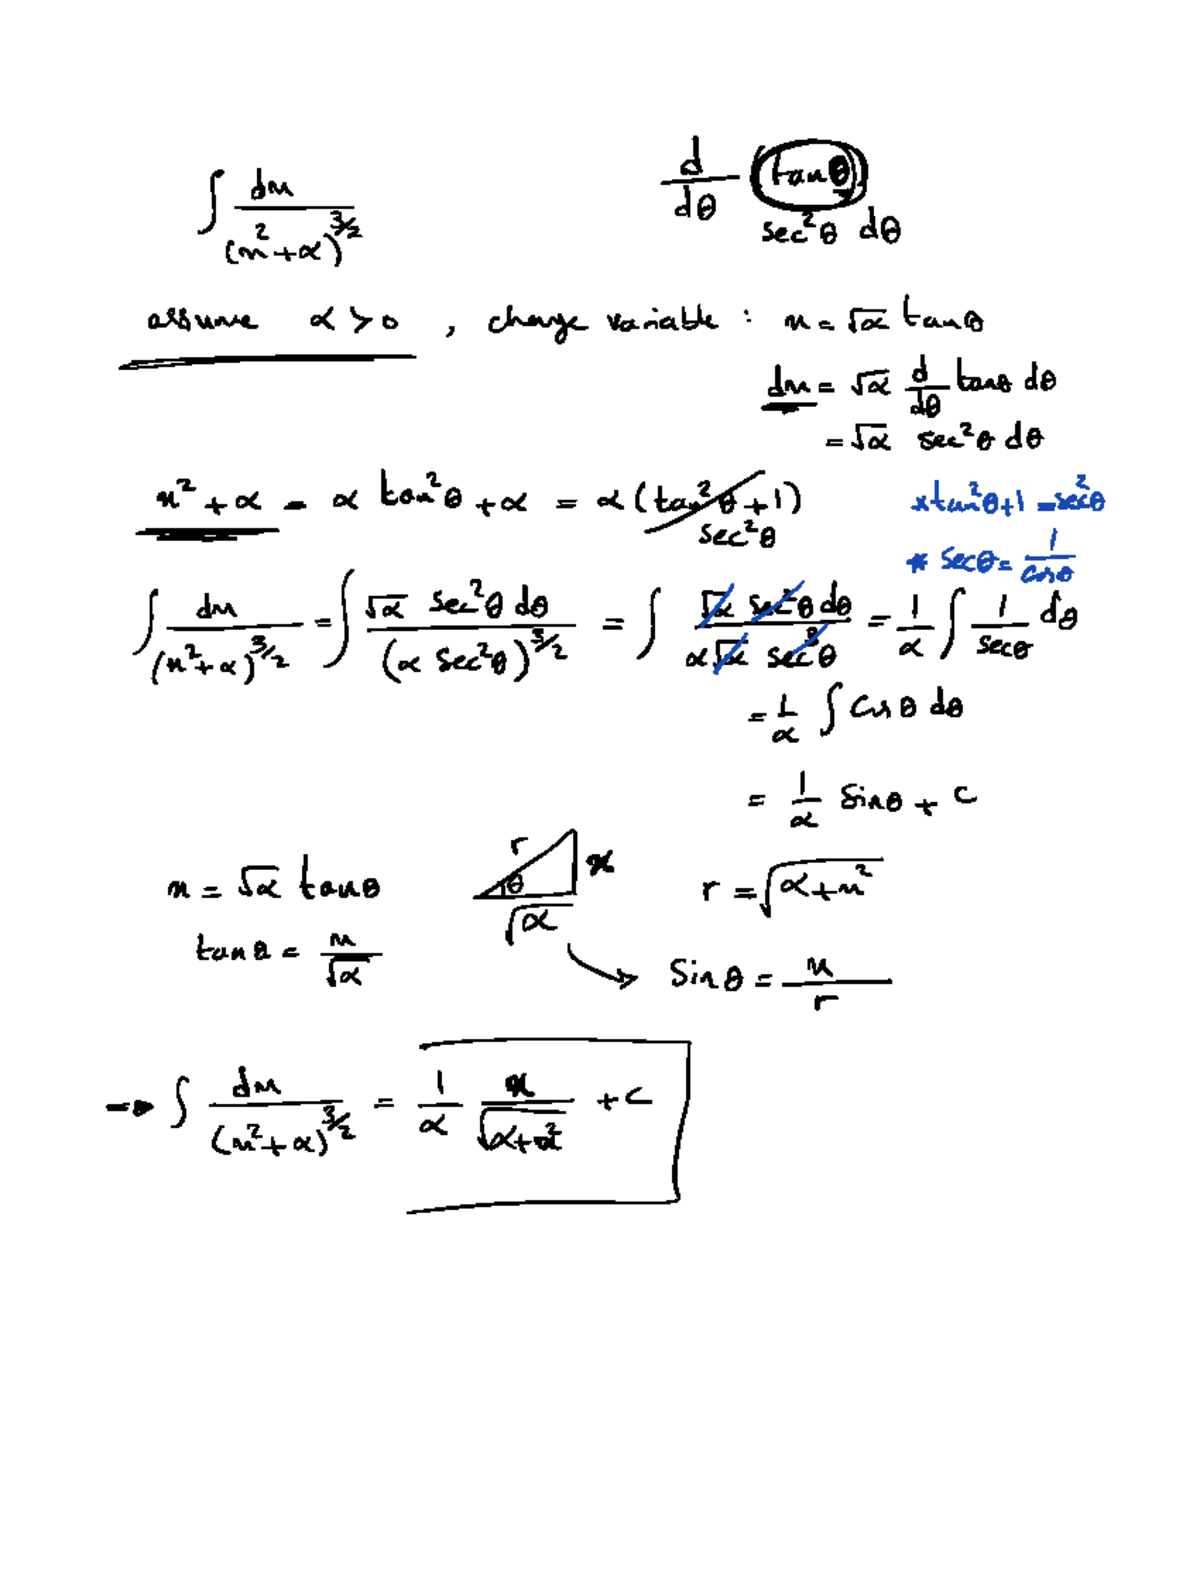 ∫ dx / (x² + α)^{3/2}    d/dθ (tanθ)
sec²θ dθ
assume α > 0 , change variable : x = √α tanθ
dx = √α d/dθ tanθ dθ
= √α sec²θ dθ
x² + α = α tan²θ + α = α (tan²θ + 1)    * tan²θ + 1 = sec²θ
sec²θ    * secθ = 1/cosθ
∫ dx / (x² + α)^{3/2} = ∫ √α sec²θ dθ / (α sec²θ)^{3/2} = ∫ √α sec²θ dθ / α√α sec³θ = 1/α ∫ 1/secθ dθ
= 1/α ∫ Cosθ dθ
= 1/α Sinθ + C
x = √α tanθ    r θ x √α    r = √(α + x²)
tanθ = x/√α    Sinθ = x/r
⇒ ∫ dx / (x² + α)^{3/2} = 1/α x/√(α + x²) + C